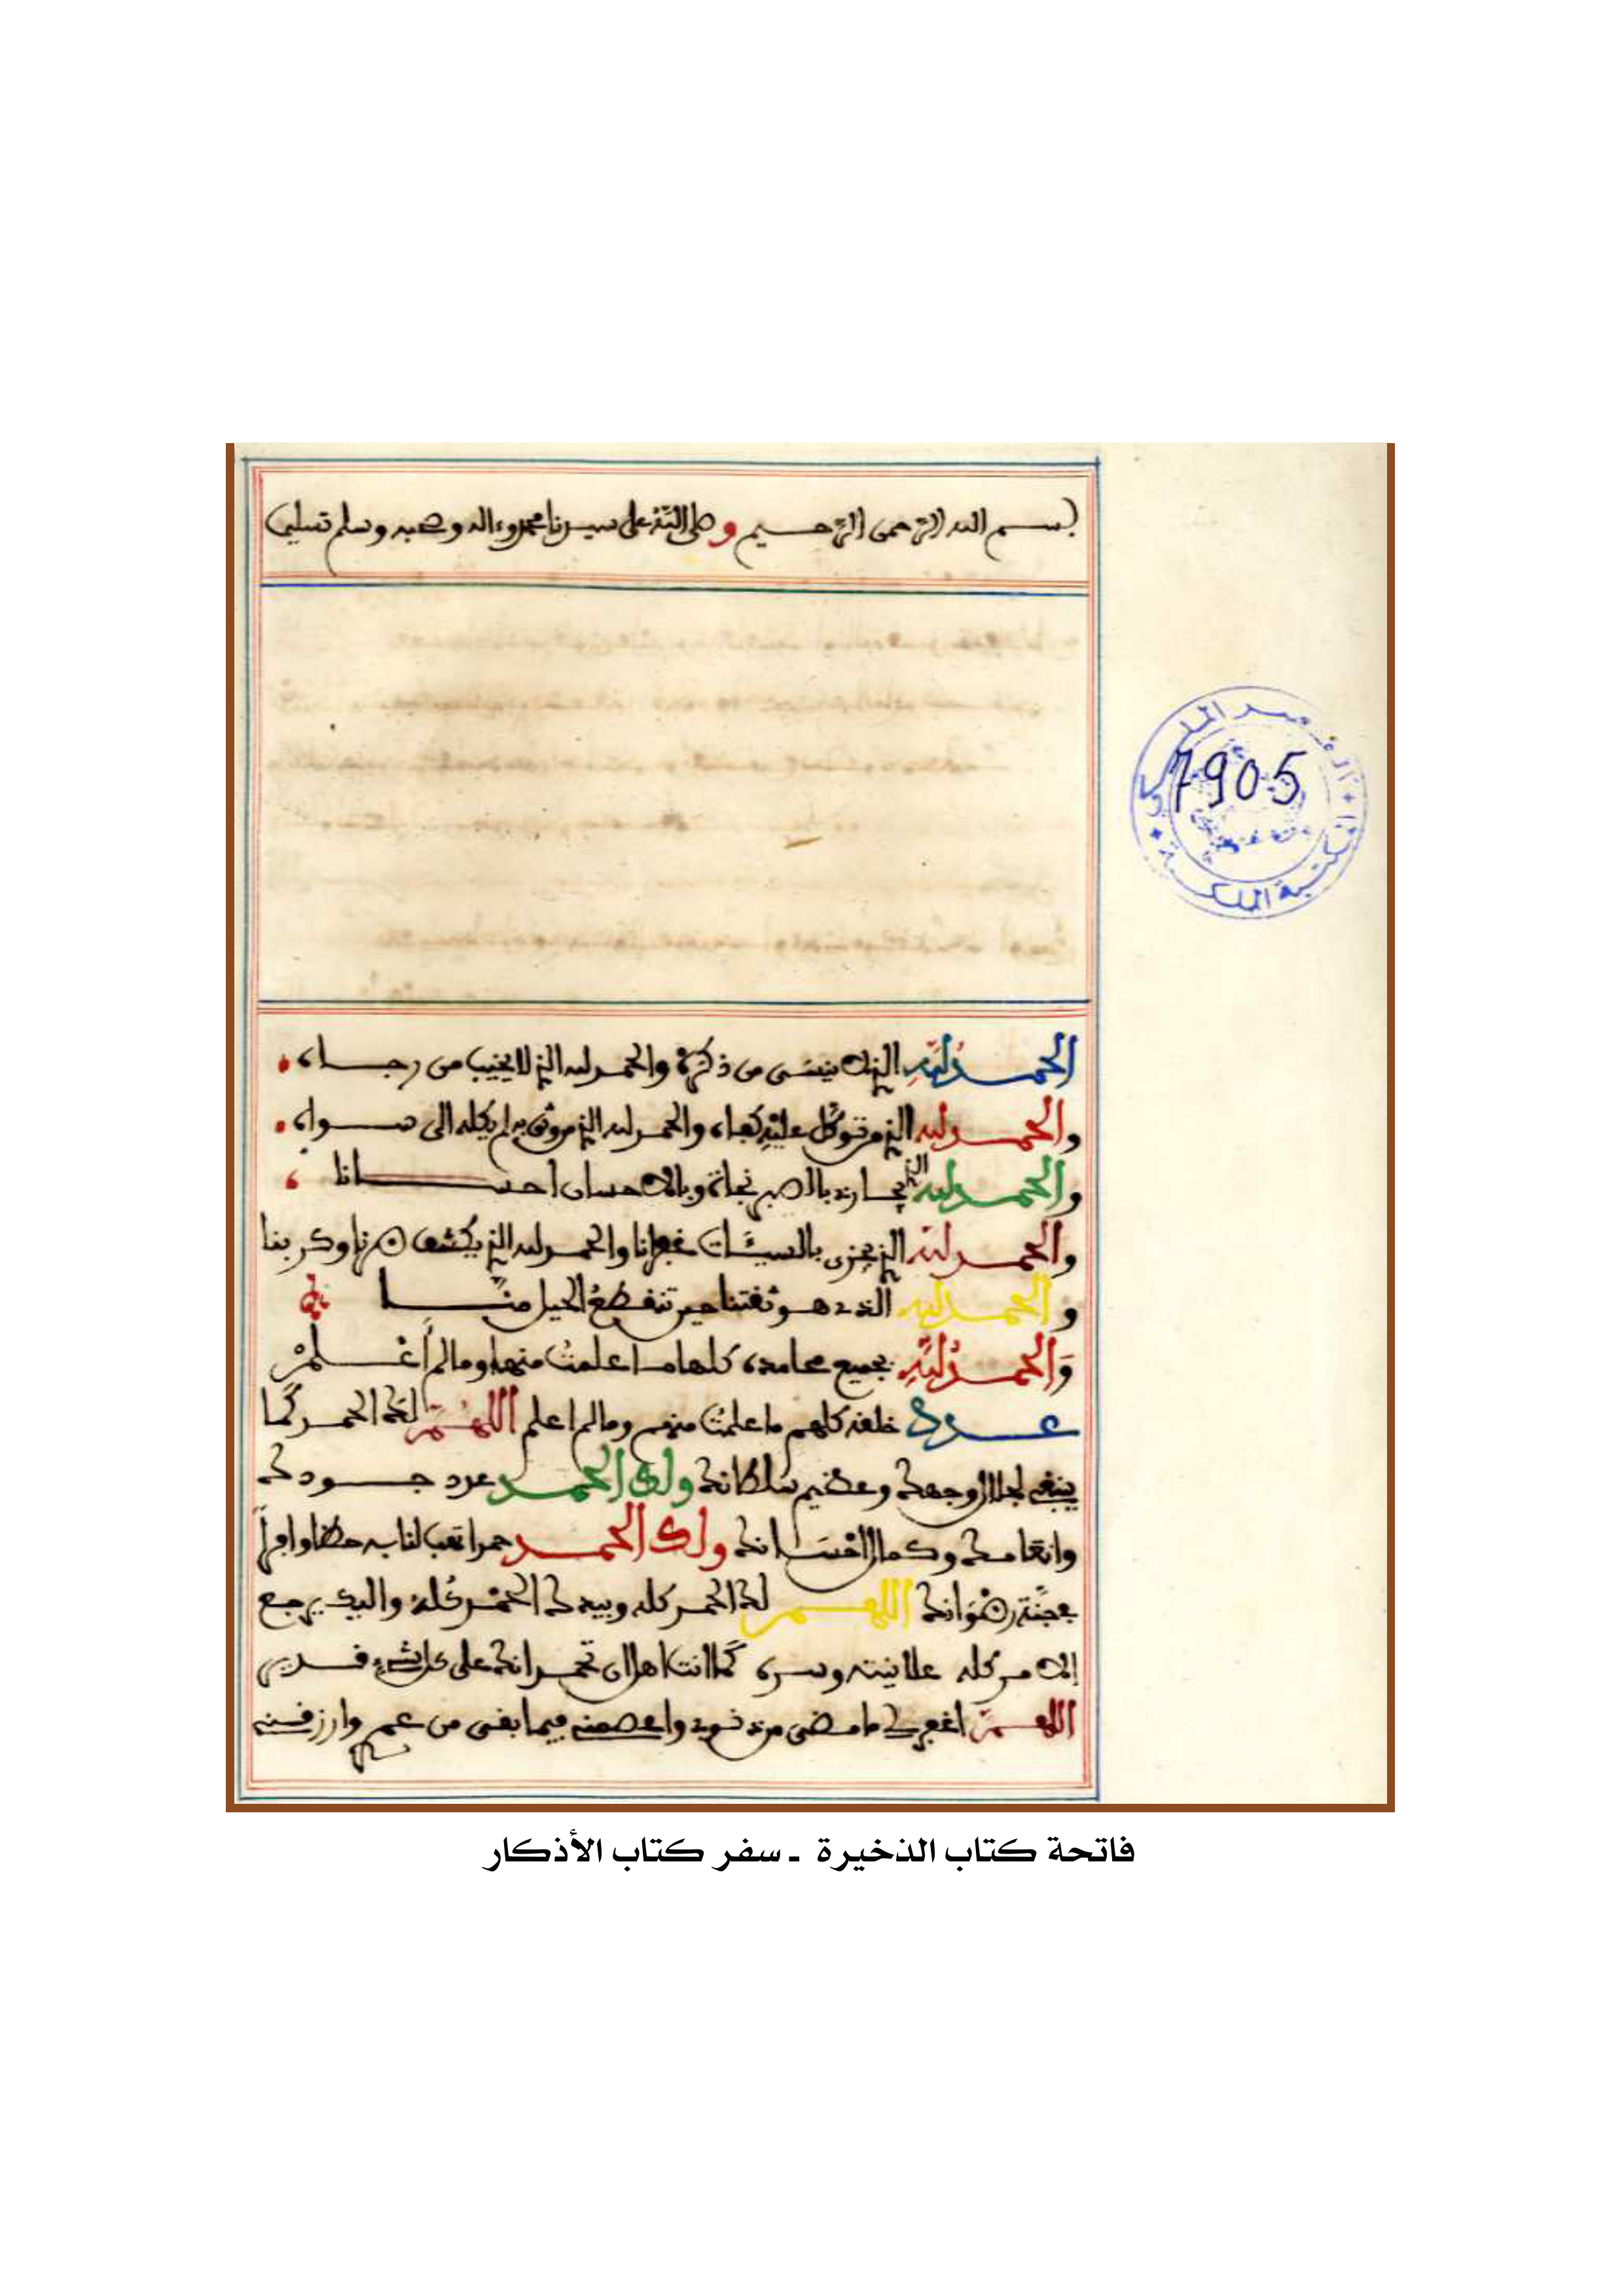 بسم الله الرحمن الرحيم وصلى الله على سيدنا محمد وءاله وصحبه وسلم تسليما
القصر الملكي
المكتبة الملكية
7905
الحمد لله الذي لا ينسى من ذكره والحمد لله الذي لا يخيب من رجاه
والحمد لله الذي من توكل عليه كفاه والحمد لله الذي من وثق به لم يكله الى سواه
والحمد لله الذي يجازي بالصبر نجاة وبالاحسان احسانا
والحمد لله الذي يجزي بالسيئات غفرانا والحمد لله الذي يكشف ضرنا وكربنا
والحمد لله الذي هو ثقتنا حين تنقطع الحيل منا
والحمد لله بجميع محامده كلها ما علمت منها وما لم أعلم
عدد خلقه كلهم ما علمت منهم وما لم اعلم اللهم لك الحمد كما
ينبغي لجلال وجهك وعظيم سلطانك ولك الحمد عدد جودك
وانعامك وكمال احسانك ولك الحمد حمدا تهب لنا به حظا وافرا
بجنة رضوانك اللهم لك الحمد كله وبيدك الخير كله واليك يرجع
الامر كله علانيته وسره كما انت اهل ان تحمد انك على كل شيء قدير
اللهم اغفر لي ما مضى من ذنوبي واعصمني فيما بقى من عمري وارزقني
فاتحة كتاب الذخيرة ـ سفر كتاب الأذكار